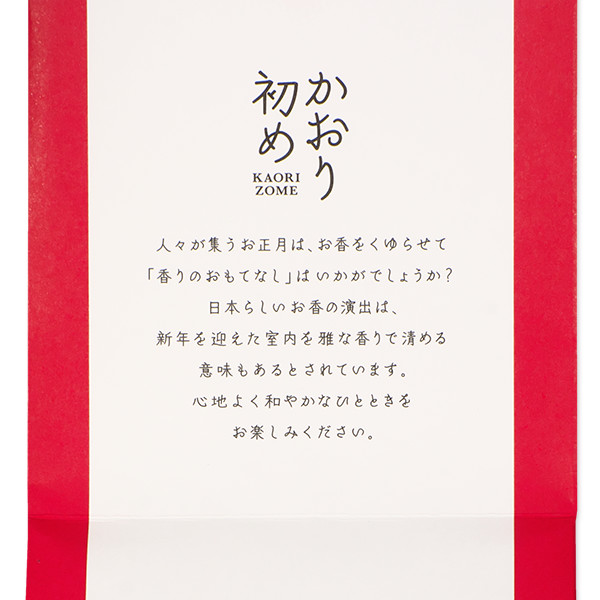 かおり
初め
KAORI
ZOME
人々が集うお正月は、お香をくゆらせて
「香りのおもてなし」はいかがでしょうか？
日本らしいお香の演出は、
新年を迎えた室内を雅な香りで清める
意味もあるとされています。
心地よく和やかなひとときを
お楽しみください。